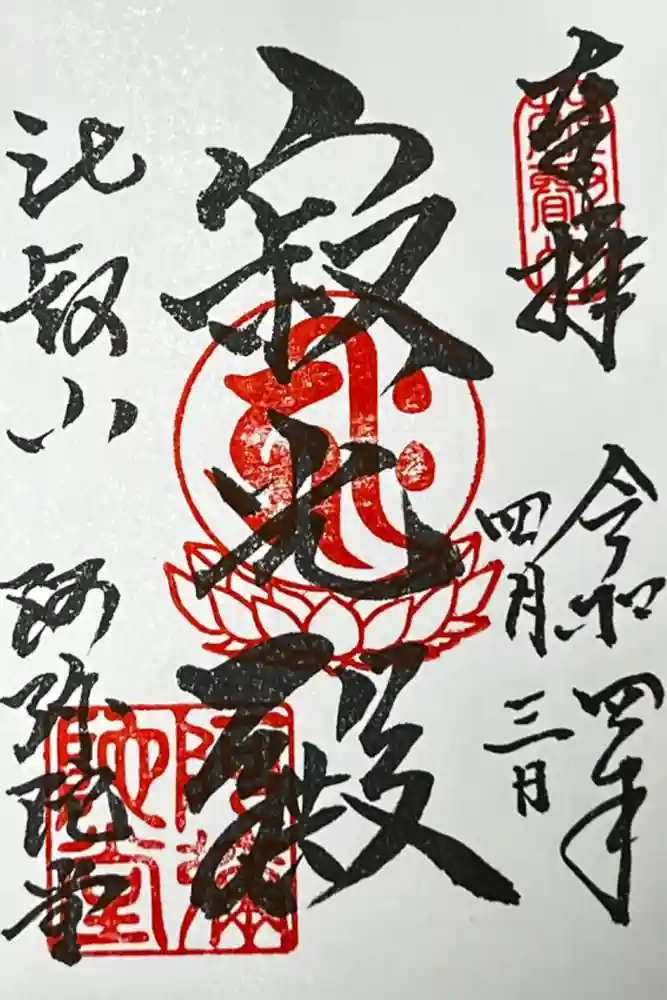 奉拝
令和四年
四月三日
寂光殿
比叡山
阿弥陀堂
阿弥陀堂